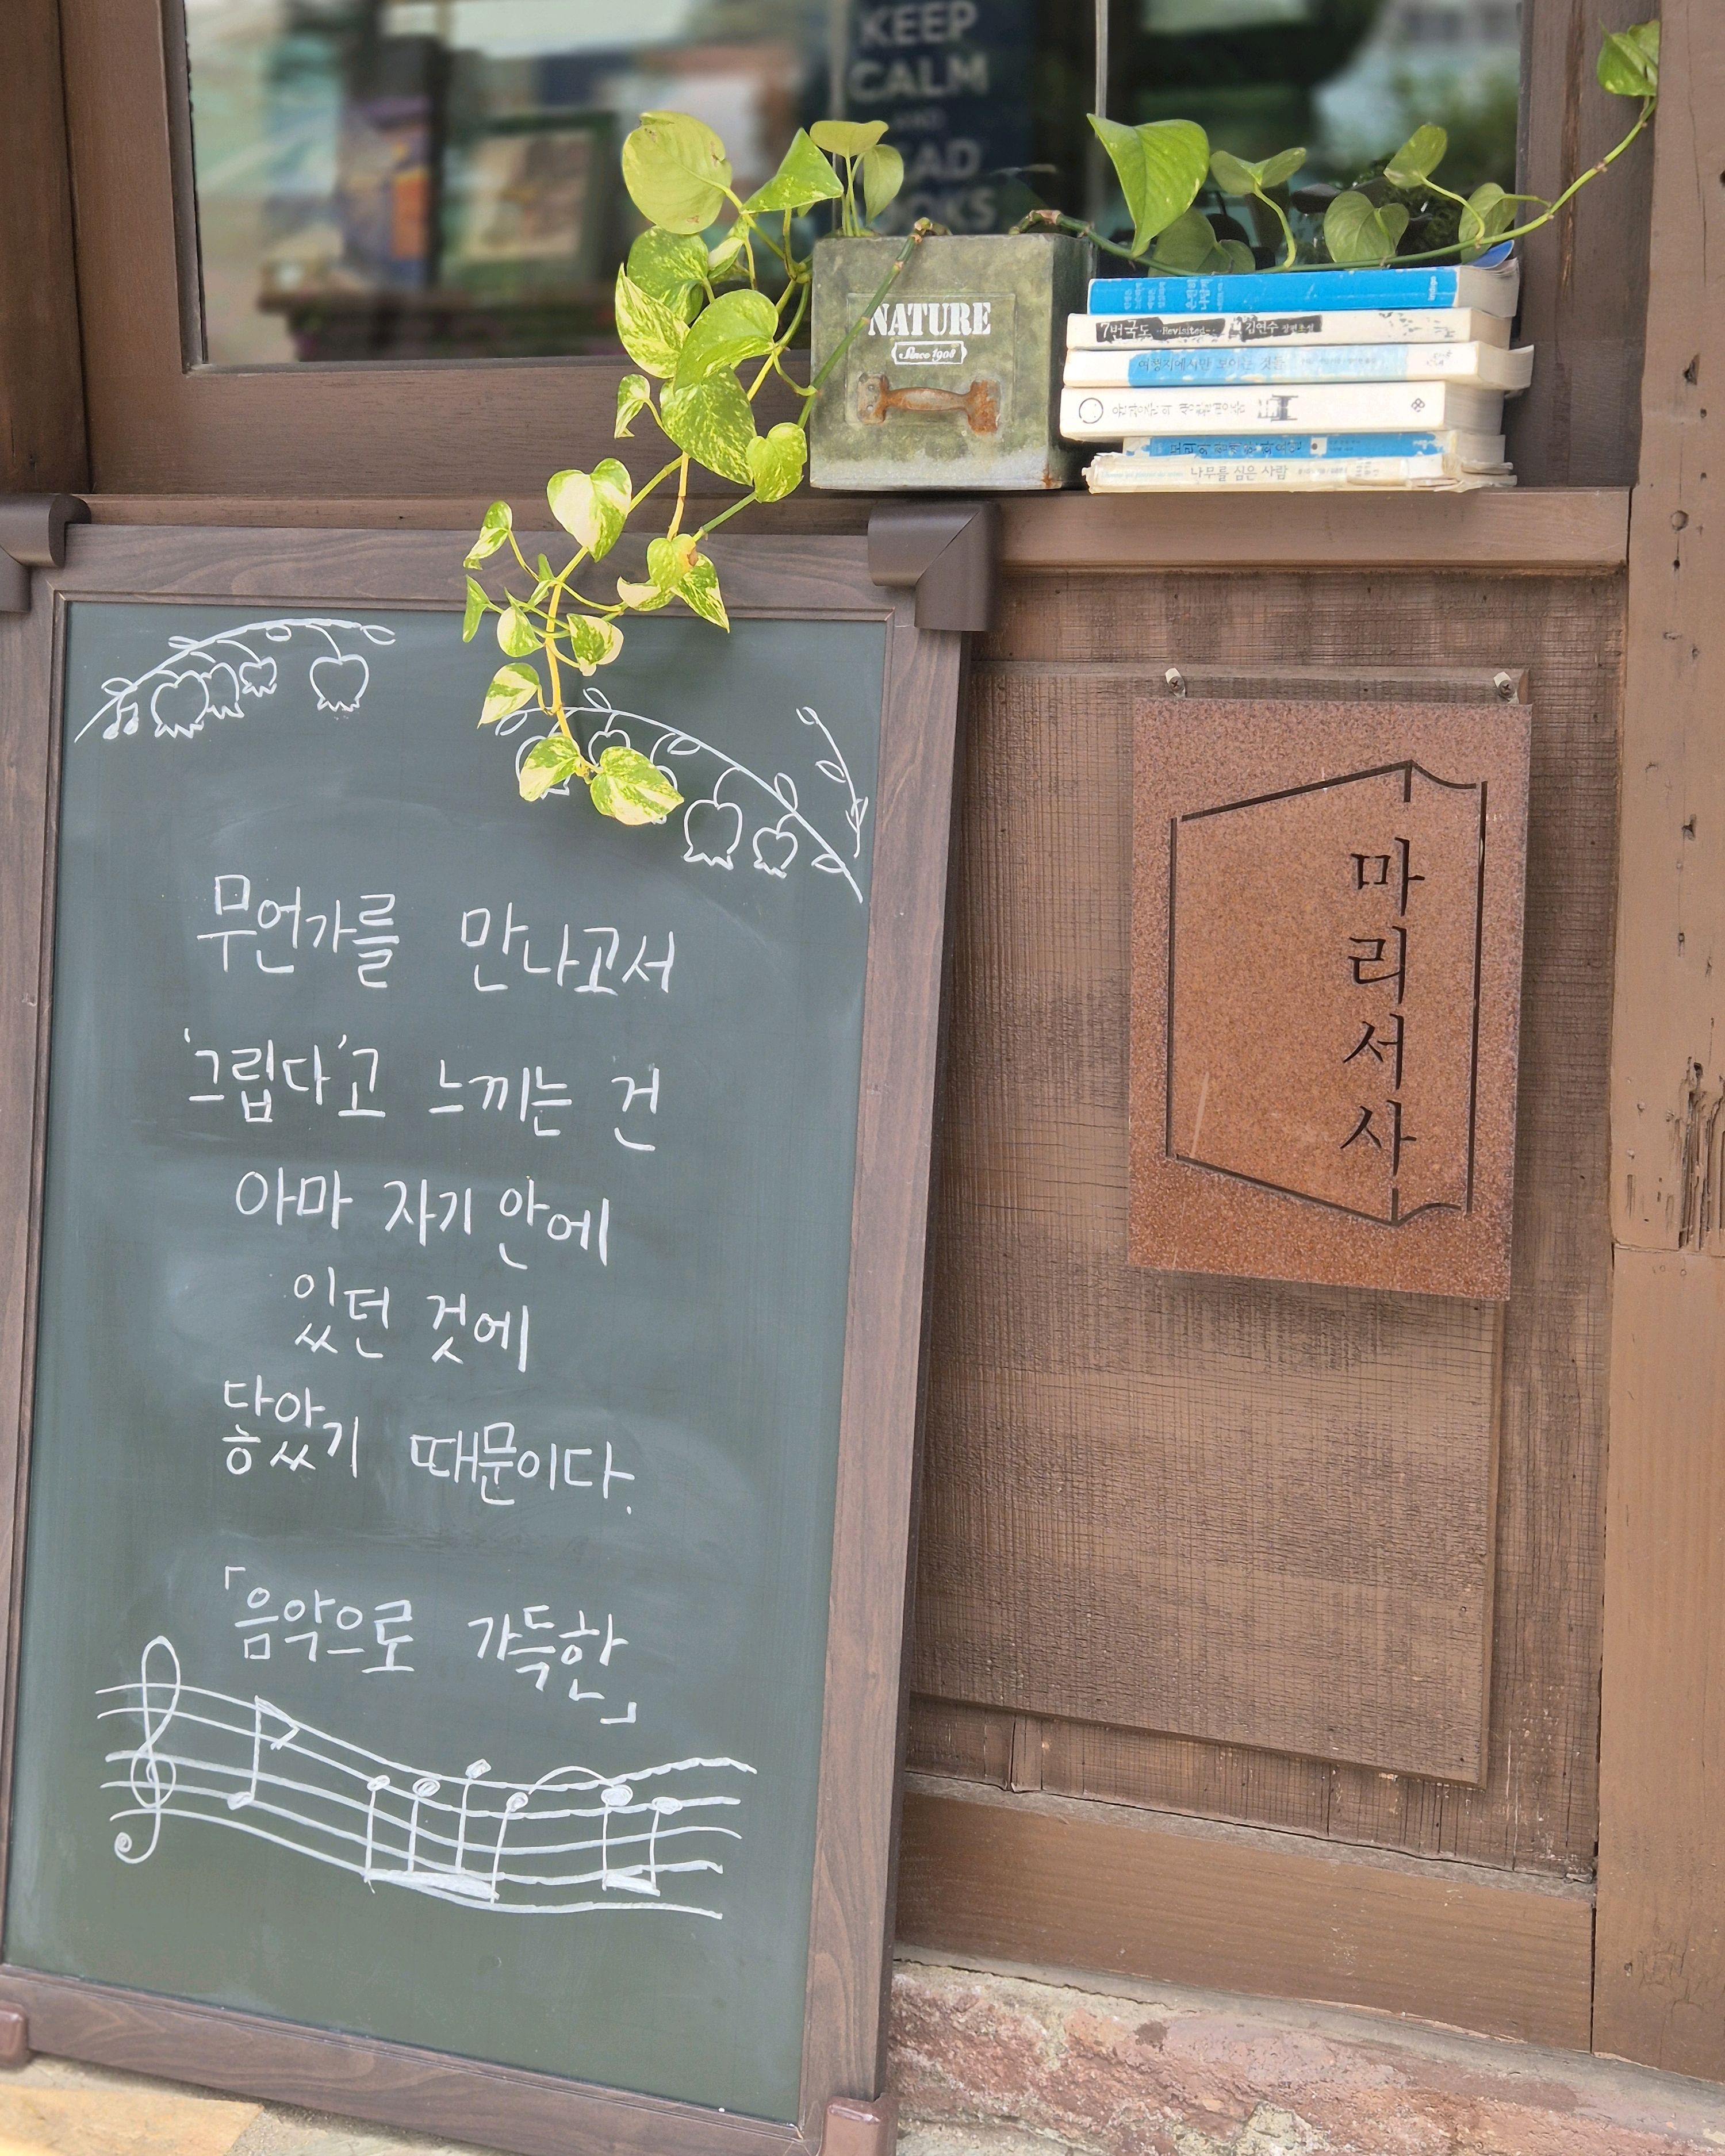 KEEP
CALM
AND
NATURE
Since 1908
7번국도 Revisited 김연수 장편소설
여행지에서만 보이는 것들
나무를 심은 사람
무언가를 만나고서
'그립다'고 느끼는 건
아마 자기 안에
있던 것에
닿았기 때문이다.
「음악으로 가득한」
마리서사